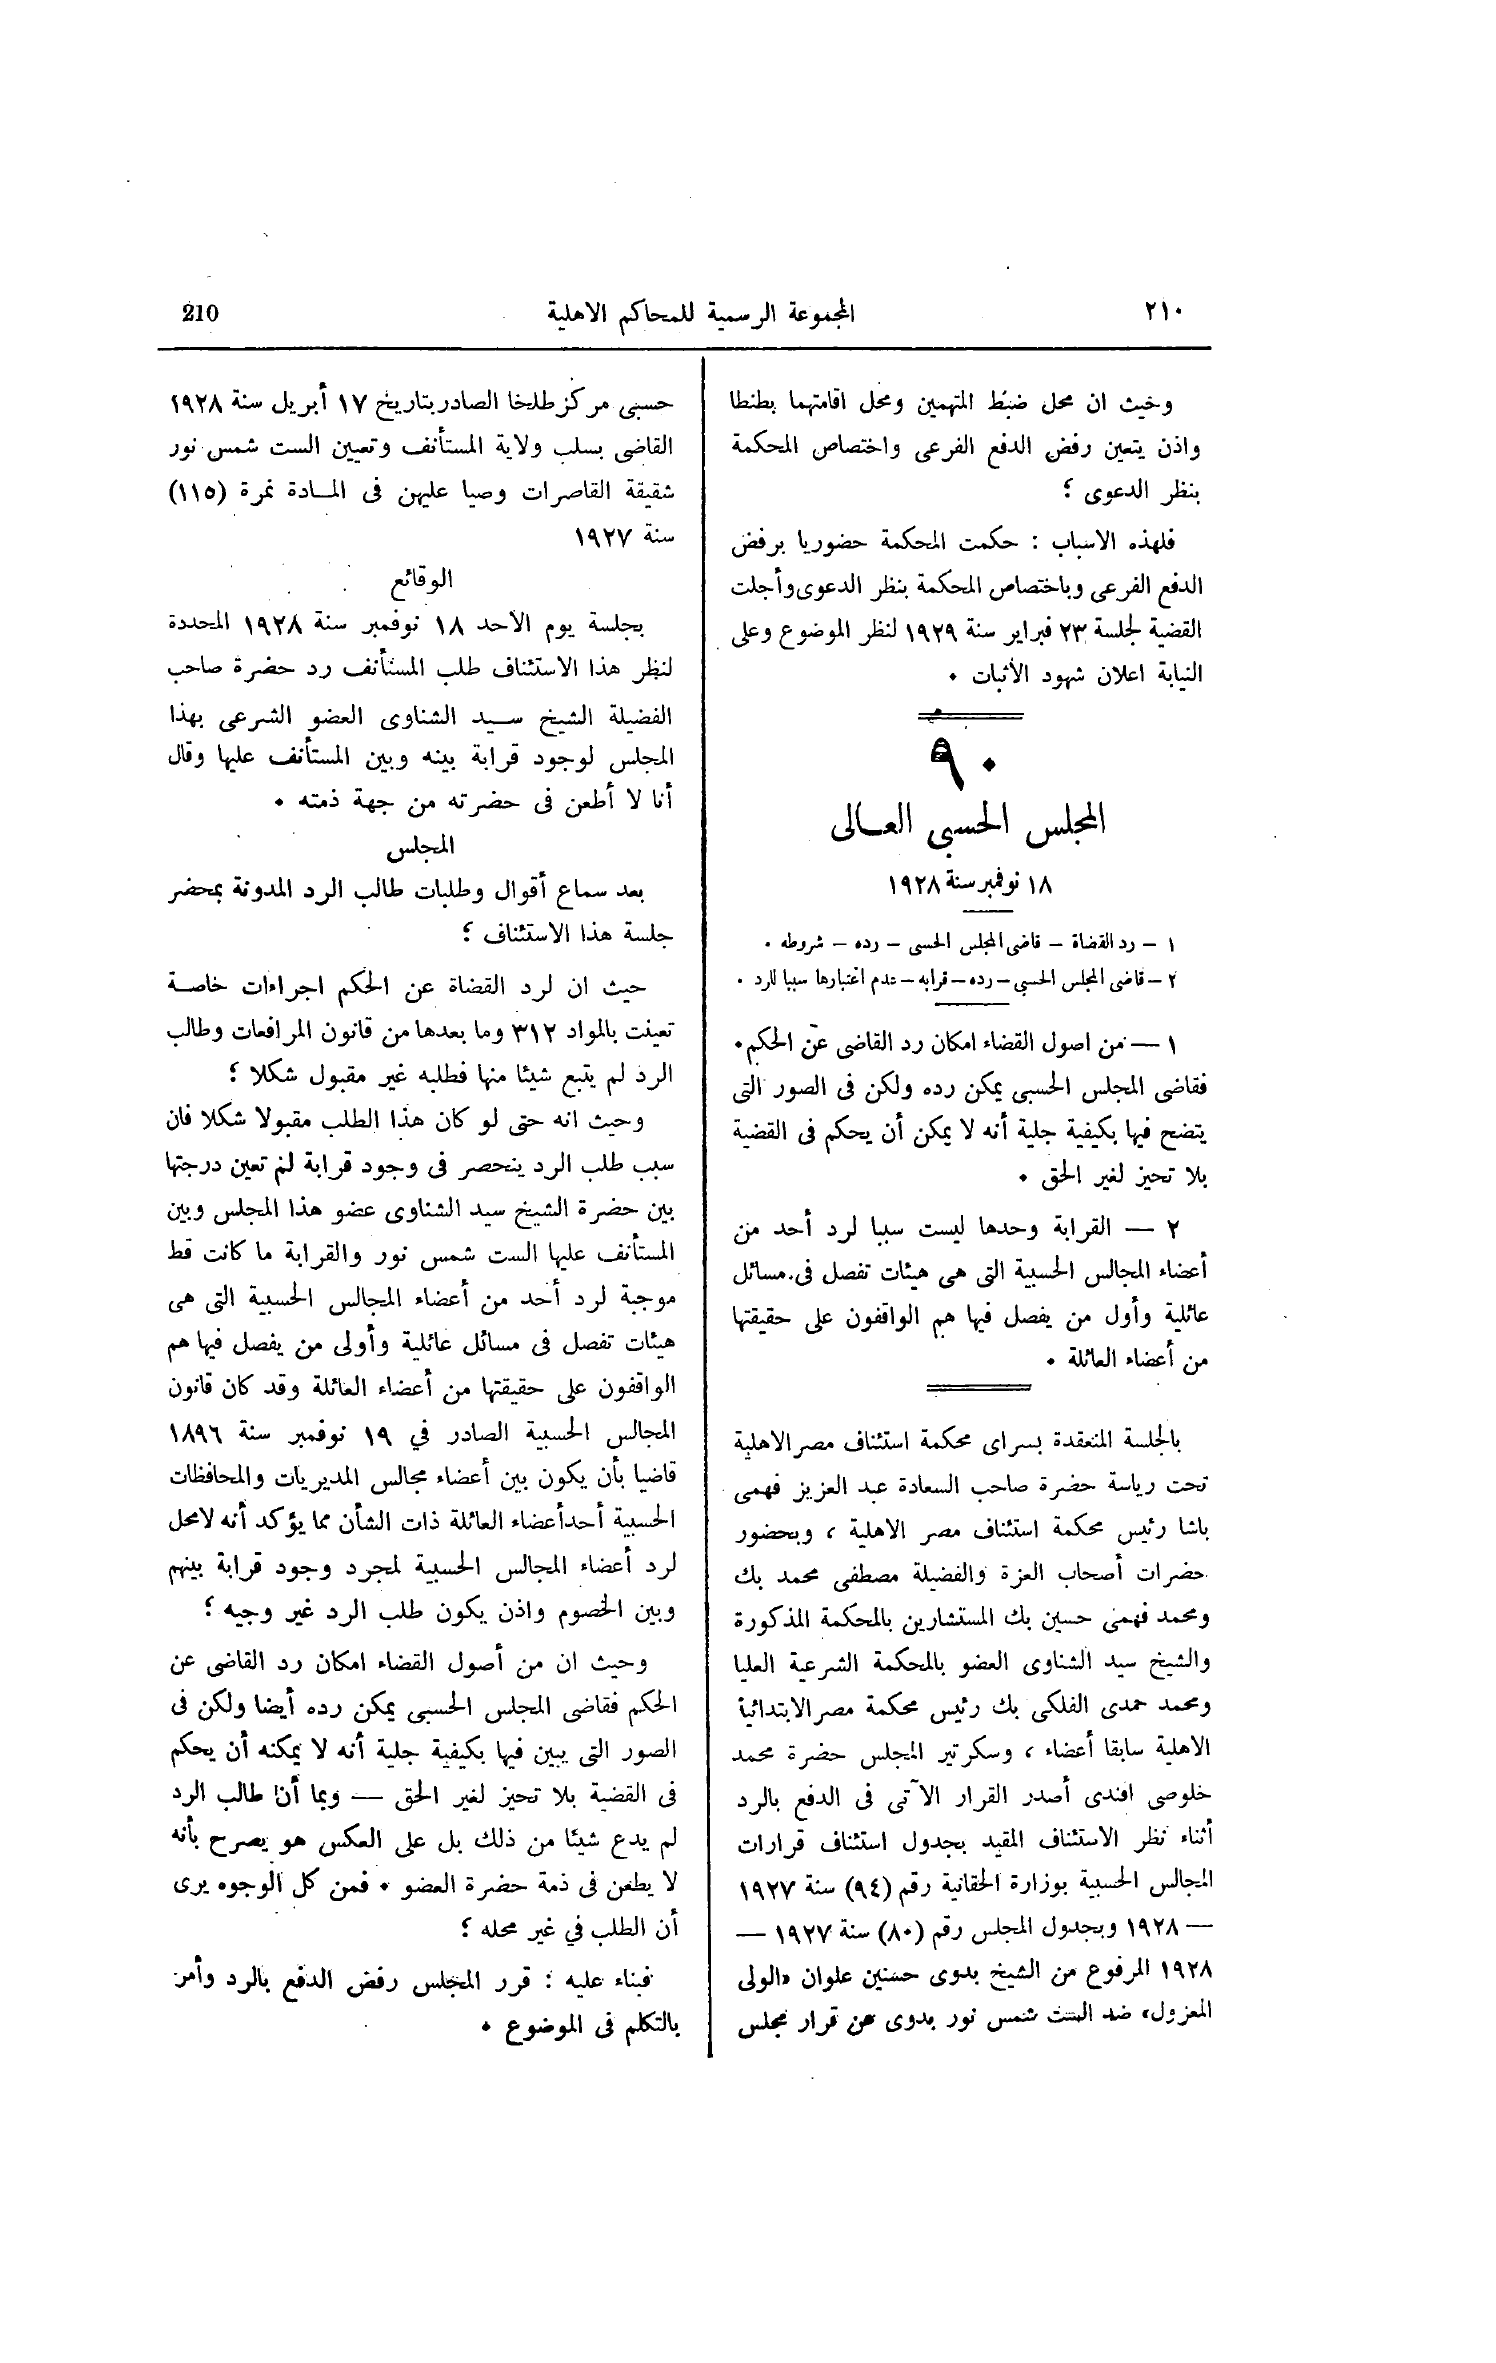 ٢١٠
المجموعة الرسمية للمحاكم الاهلية
210
وحيث ان محل ضبط المتهمين ومحل اقامتهما بطنطا
واذن يتعين رفض الدفع الفرعى واختصاص المحكمة
بنظر الدعوى ؛
فلهذه الاسباب : حكمت المحكمة حضوريا برفض
الدفع الفرعى وباختصاص المحكمة بنظر الدعوى وأجلت
القضية لجلسة ٢٣ فبراير سنة ١٩٢٩ لنظر الموضوع وعلى
النيابة اعلان شهود الأثبات .
٩٠
المجلس الحسبى العالى
١٨ نوفمبر سنة ١٩٢٨
١ – رد القضاة – قاضى المجلس الحسبى – رده – شروطه .
٢ – قاضى المجلس الحسبى – رده – قرابه – عدم اعتبارها سببا للرد .
١ — من اصول القضاء امكان رد القاضى عن الحكم.
فقاضى المجلس الحسبى يمكن رده ولكن فى الصور التى
يتضح فيها بكيفية جلية أنه لا يمكن أن يحكم فى القضية
بلا تحيز لغير الحق .
٢ — القرابة وحدها ليست سببا لرد أحد من
أعضاء المجالس الحسبية التى هى هيئات تفصل فى مسائل
عائلية وأول من يفصل فيها هم الواقفون على حقيقتها
من أعضاء العائلة .
بالجلسة المنعقدة بسراى محكمة استئناف مصر الاهلية
تحت رياسة حضرة صاحب السعادة عبد العزيز فهمى
باشا رئيس محكمة استئناف مصر الاهلية ، وبحضور
حضرات أصحاب العزة والفضيلة مصطفى محمد بك
ومحمد فهمى حسين بك المستشارين بالمحكمة المذكورة
والشيخ سيد الشناوى العضو بالمحكمة الشرعية العليا
ومحمد حمدى الفلكى بك رئيس محكمة مصر الابتدائية
الاهلية سابقا أعضاء ، وسكرتير المجلس حضرة محمد
خلوصى افندى أصدر القرار الآتى فى الدفع بالرد
أثناء نظر الاستئناف المقيد بجدول استئناف قرارات
المجالس الحسبية بوزارة الحقانية رقم (٩٤) سنة ١٩٢٧
— ١٩٢٨ وبجدول المجلس رقم (٨٠) سنة ١٩٢٧ —
١٩٢٨ المرفوع من الشيخ بدوى حسنين علوان «الولى
المعزول» ضد الست شمس نور بدوى عن قرار مجلس
حسبى مركز طلخا الصادر بتاريخ ١٧ أبريل سنة ١٩٢٨
القاضى بسلب ولاية المستأنف وتعيين الست شمس نور
شقيقة القاصرات وصيا عليهن فى المادة نمرة (١١٥)
سنة ١٩٢٧
الوقائع
بجلسة يوم الاحد ١٨ نوفمبر سنة ١٩٢٨ المحددة
لنظر هذا الاستئناف طلب المستأنف رد حضرة صاحب
الفضيلة الشيخ سيد الشناوى العضو الشرعى بهذا
المجلس لوجود قرابة بينه وبين المستأنف عليها وقال
أنا لا أطعن فى حضرته من جهة ذمته .
المجلس
بعد سماع أقوال وطلبات طالب الرد المدونة بمحضر
جلسة هذا الاستئناف ؛
حيث ان لرد القضاة عن الحكم اجراءات خاصة
تعينت بالمواد ٣١٢ وما بعدها من قانون المرافعات وطالب
الرد لم يتبع شيئا منها فطلبه غير مقبول شكلا ؛
وحيث انه حتى لو كان هذا الطلب مقبولا شكلا فان
سبب طلب الرد ينحصر فى وجود قرابة لم تعين درجتها
بين حضرة الشيخ سيد الشناوى عضو هذا المجلس وبين
المستأنف عليها الست شمس نور والقرابة ما كانت قط
موجبة لرد أحد من أعضاء المجالس الحسبية التى هى
هيئات تفصل فى مسائل عائلية وأولى من يفصل فيها هم
الواقفون على حقيقتها من أعضاء العائلة وقد كان قانون
المجالس الحسبية الصادر في ١٩ نوفمبر سنة ١٨٩٦
قاضيا بأن يكون بين أعضاء مجالس المديريات والمحافظات
الحسبية أحد أعضاء العائلة ذات الشأن مما يؤكد أنه لا محل
لرد أعضاء المجالس الحسبية لمجرد وجود قرابة بينهم
وبين الخصوم واذن يكون طلب الرد غير وجيه ؛
وحيث ان من أصول القضاء امكان رد القاضى عن
الحكم فقاضى المجلس الحسبى يمكن رده أيضا ولكن فى
الصور التى يبين فيها بكيفية جلية أنه لا يمكنه أن يحكم
فى القضية بلا تحيز لغير الحق — وبما أن طالب الرد
لم يدع شيئا من ذلك بل على العكس هو يصرح بأنه
لا يطعن فى ذمة حضرة العضو . فمن كل الوجوه يرى
أن الطلب في غير محله ؛
فبناء عليه : قرر المجلس رفض الدفع بالرد وأمر
بالتكلم فى الموضوع .